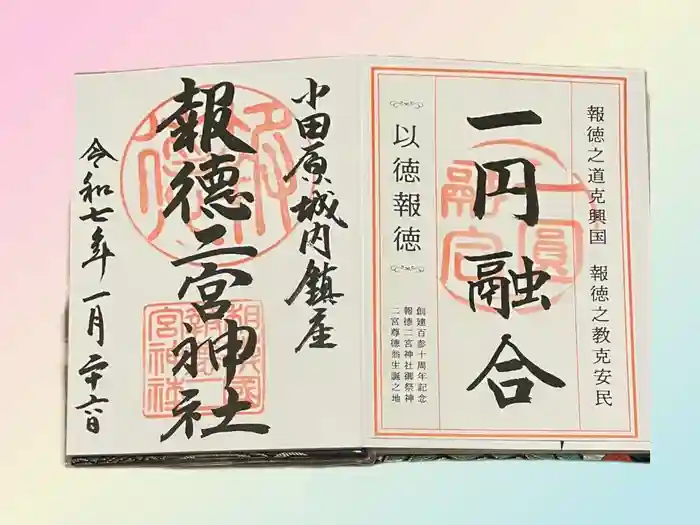 報徳之道克興国　報徳之教克安民
一円融合
以徳報徳
創建百参十周年記念
報徳二宮神社御祭神
二宮尊徳翁生誕之地
小田原城内鎮座
報徳二宮神社
令和七年一月二十六日